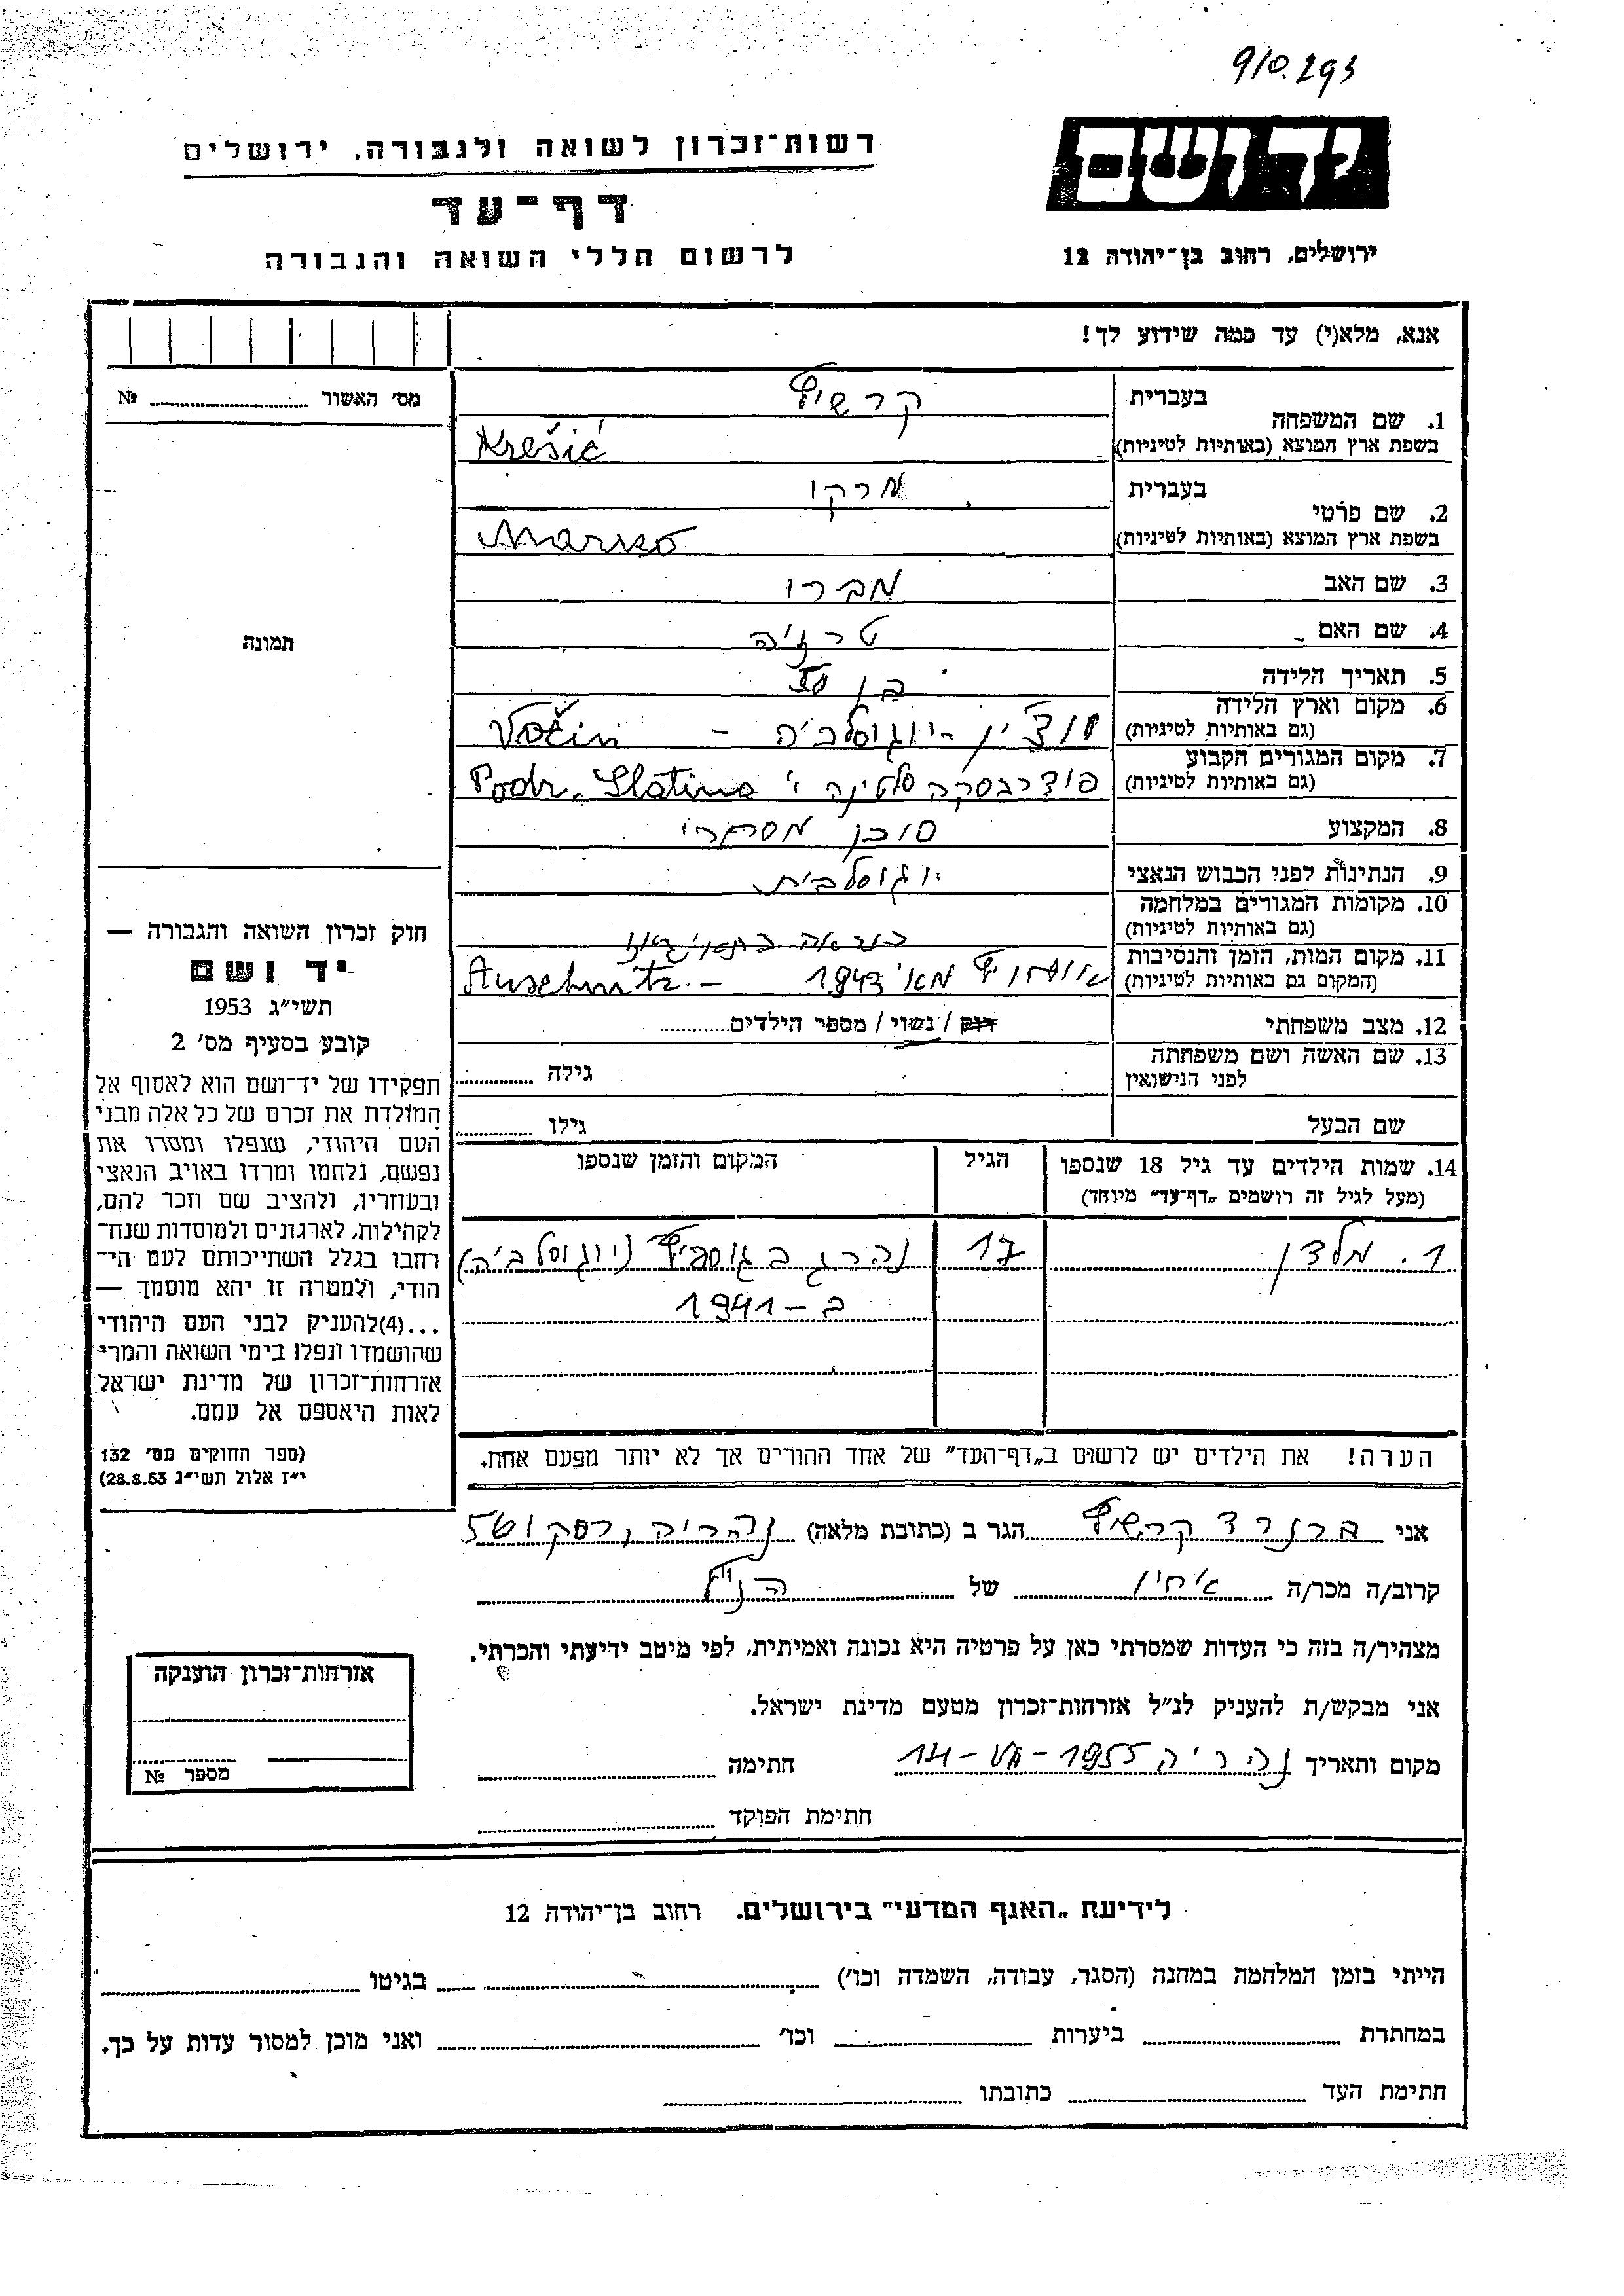 910.293
יד ושם
רשות־זכרון לשואה ולגבורה, ירושלים
דף־עד
לרשום חללי השואה והגבורה
ירושלים, רחוב בן־יהודה 12
אנא, מלא(י) עד כמה שידוע לך!
מס׳ האשור № 
בעברית קרשיץ
1. שם המשפחה
בשפת ארץ המוצא (באותיות לטיניות) Krešić
בעברית מרקו
2. שם פרטי
בשפת ארץ המוצא (באותיות לטיניות) Marko
3. שם האב
4. שם האם טרזיה
5. תאריך הלידה בן 50
6. מקום וארץ הלידה
(גם באותיות לטיניות) ווצ׳ין - יוגוסלביה - Voćin
7. מקום המגורים הקבוע
(גם באותיות לטיניות) פודרבסקה סלטינה י׳ Podr. Slatina
8. המקצוע סוכן מסחרי
9. הנתינות לפני הכבוש הנאצי יוגוסלבית
10. מקומות המגורים במלחמה
(גם באותיות לטיניות)
11. מקום המות, הזמן והנסיבות
(המקום גם באותיות לטיניות) אושויץ מאי 1943 - Auschwitz
12. מצב משפחתי רווק / נשוי / מספר הילדים
13. שם האשה ושם משפחתה
לפני הנישואין גילה
שם הבעל גילו
14. שמות הילדים עד גיל 18 שנספו הגיל המקום והזמן שנספו
(מעל לגיל זה רושמים „דף־עד” מיוחד)
1. מלדן 17 נהרג בגוספיץ (יוגוסלביה)
ב-1941
הערה! את הילדים יש לרשום ב„דף־העד” של אחד ההורים אך לא יותר מפעם אחת.
תמונה
חוק זכרון השואה והגבורה —
יד ושם
תשי״ג 1953
קובע בסעיף מס׳ 2
תפקידו של יד־ושם הוא לאסוף אל
המולדת את זכרם של כל אלה מבני
העם היהודי, שנפלו ומסרו את
נפשם, נלחמו ומרדו באויב הנאצי
ובעוזריו, ולהציב שם וזכר להם,
לקהילות, לארגונים ולמוסדות שנח־
רחבו בגלל השתייכותם לעם הי־
הודי, ולמטרה זו יהא מוסמך —
...(4)להעניק לבני העם היהודי
שהושמדו ונפלו בימי השואה והמרי
אזרחות־זכרון של מדינת ישראל
לאות היאספם אל עמם.
(ספר החוקים מס׳ 132
י״ז אלול תשי״ג 28.8.53)
אני ברנרד קרשיץ הגר ב (כתובת מלאה) נהריה, רסקו 56
קרוב/ה מכר/ה אחיו של הנ״ל
מצהיר/ה בזה כי העדות שמסרתי כאן על פרטיה היא נכונה ואמיתית, לפי מיטב ידיעתי והכרתי.
אני מבקש/ת להעניק לנ״ל אזרחות־זכרון מטעם מדינת ישראל.
מקום ותאריך נהריה 14-VII-1955 חתימה
חתימת הפוקד
אזרחות־זכרון הוענקה
מספר №
לידיעת „האגף המדעי” בירושלים. רחוב בן־יהודה 12
הייתי בזמן המלחמה במחנה (הסגר, עבודה, השמדה וכו׳) בגיטו
במחתרת ביערות וכו׳ ואני מוכן למסור עדות על כך.
חתימת העד כתובתו